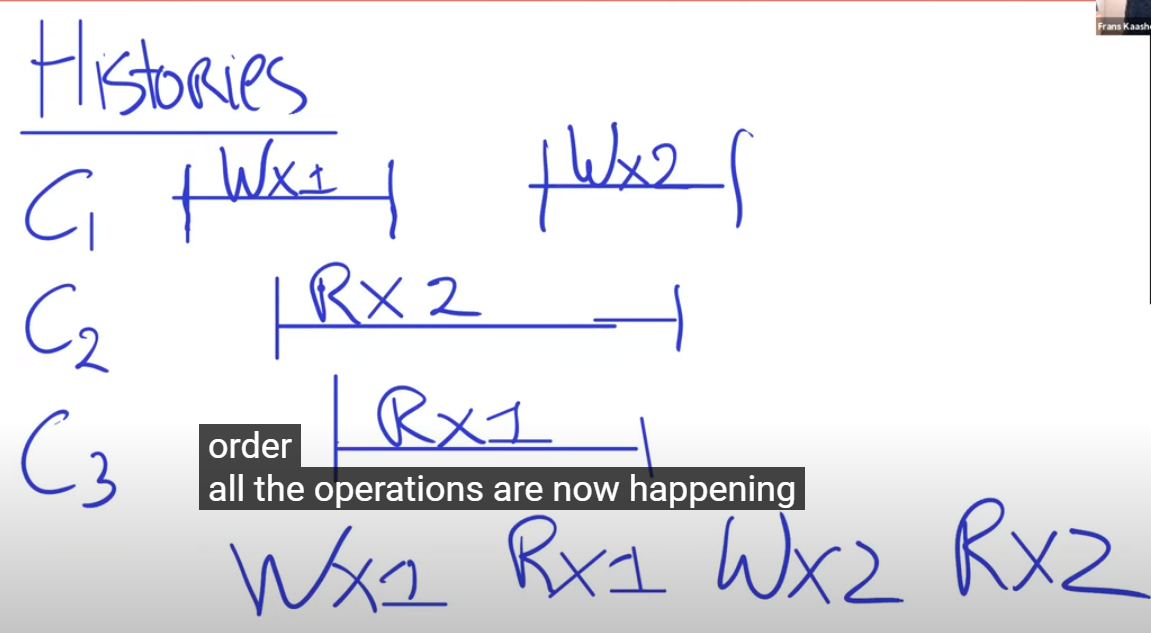 Frans Kaash
Histories
C1 Wx1 Wx2
C2 Rx2
C3 Rx1
order
all the operations are now happening
Wx1 Rx1 Wx2 Rx2